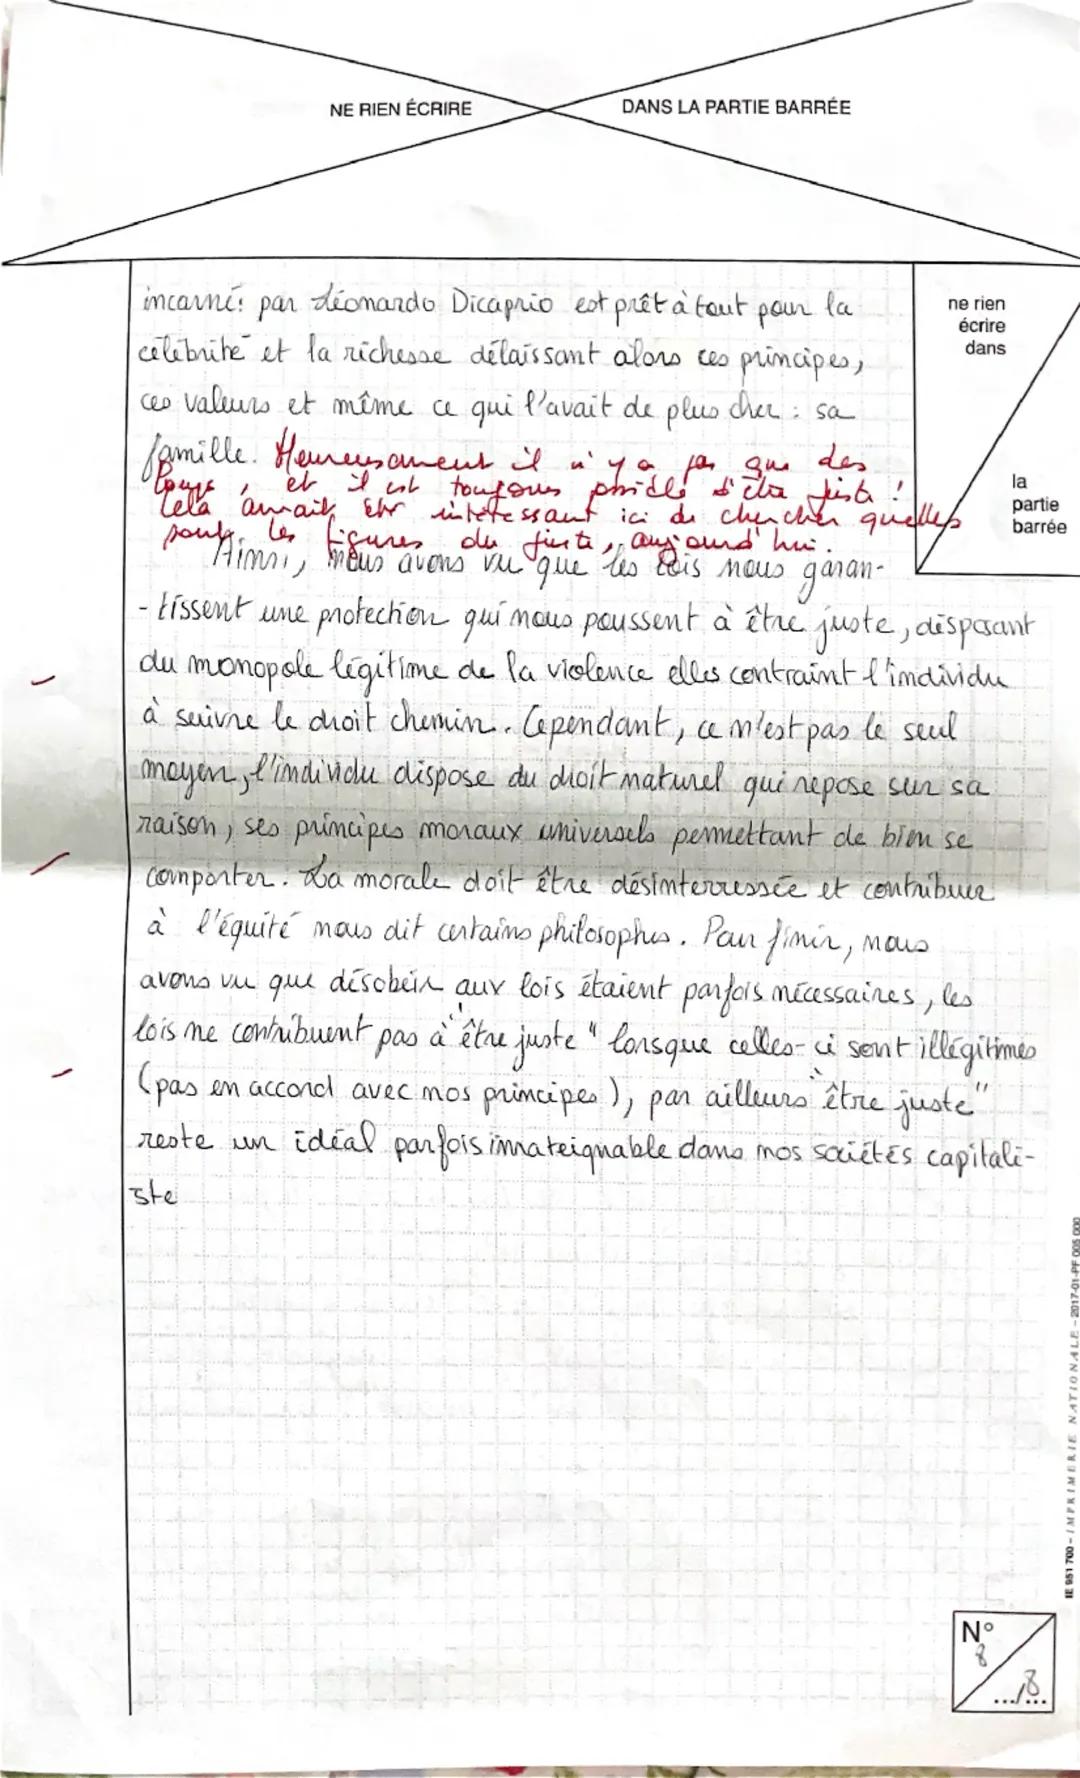 NE RIEN ÉCRIRE DANS LA PARTIE BARRÉE
ne rien
écrire
dans
la
partie
barrée
incarné: par Léonardo Dicaprio est prêt à tout pour la
célébrité et la richesse délaissant alors ces principes,
ces valeurs et même ce qui l'avait de plus cher : sa
famille. Heureusement il n'y a pas que des
loups, et il est toujours possible d'être juste !
Cela aurait été intéressant ici de chercher quelles
sont les figures du juste, aujourd'hui.
Ainsi, nous avons vu que les lois nous garan-
-tissent une protection qui nous poussent à être juste, disposant
du monopole légitime de la violence elles contraint l'individu
à suivre le droit chemin. Cependant, ce n'est pas le seul
moyen, l'individu dispose du droit naturel qui repose sur sa
raison, ses principes moraux universels permettant de bien se
comporter. La morale doit être désinterressée et contribuer
à l'équité nous dit certains philosophes. Pour finir, nous
avons vu que désobéir aux lois étaient parfois nécessaires, les
lois ne contribuent pas à "être juste" lorsque celles-ci sont illégitimes
(pas en accord avec nos principes), par ailleurs "être juste"
reste un idéal parfois innateignable dans nos sociétés capitali-
ste
IE 951 700 – IMPRIMERIE NATIONALE – 2017-01-PF 005 000
N°
8
.../8...